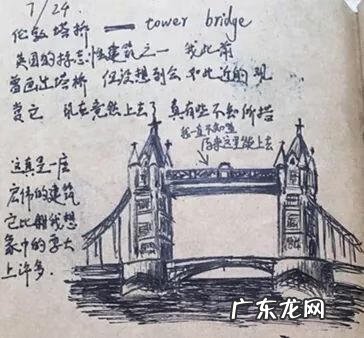 7/24.
伦敦塔桥 — tower bridge
英国的标志性建筑之一 我此前
曾画过塔桥 但没想到会如此近的观
赏它 现在竟然上去了 真有些不知所措
我一直不知道
原来这里能上去
这真是一座
宏伟的建筑
它比我想
象中的要大
上许多.
广东龙网